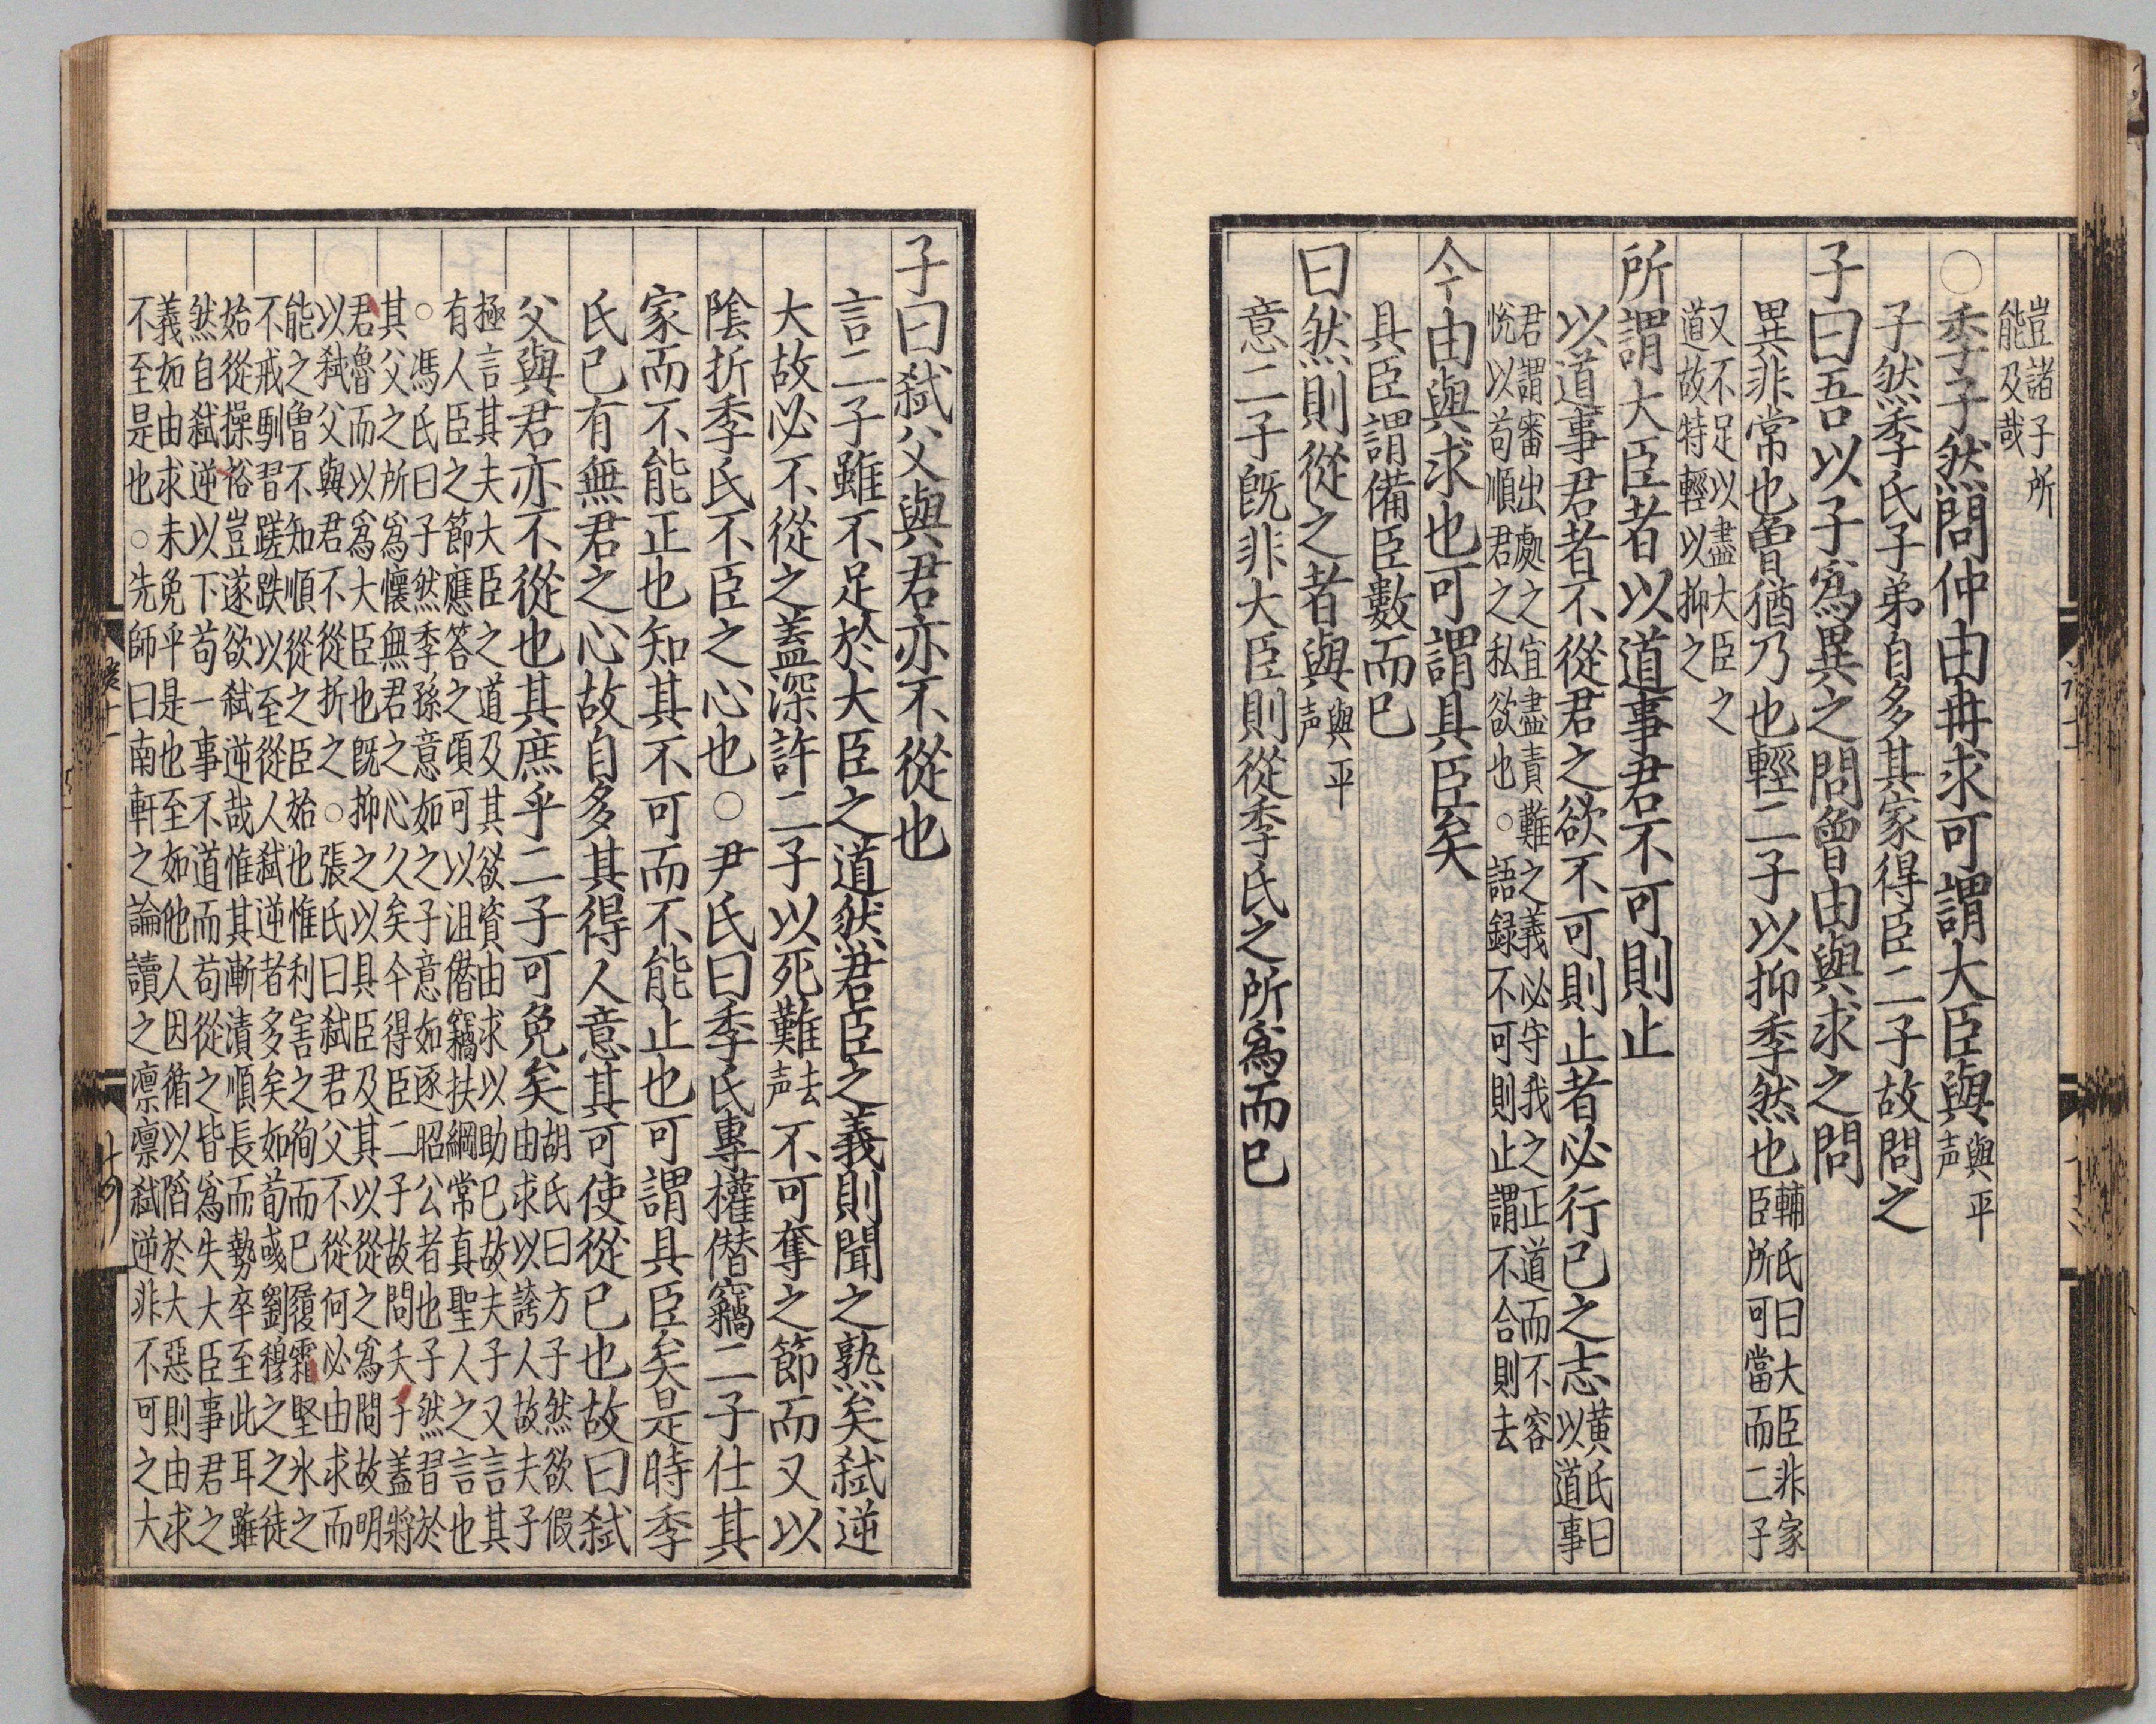 豈諸子所
能及哉
○季子然問仲由冉求可謂大臣與與平
声
子然季氏子弟自多其家得臣二子故問之
子曰吾以子爲異之問曾由與求之問
異非常也曾猶乃也輕二子以抑季然也輔氏曰大臣非家
臣所可當而二子
又不足以盡大臣之
道故特輕以抑之
所謂大臣者以道事君不可則止
以道事君者不從君之欲不可則止者必行己之志黄氏曰
以道事
君謂審出處之宜盡責難之義必守我之正道而不容
悅以苟順君之私欲也○語録不可則止謂不合則去
今由與求也可謂具臣矣
具臣謂備臣數而已
曰然則從之者與與平
声
意二子旣非大臣則從季氏之所爲而已
子曰弑父與君亦不從也
言二子雖不足於大臣之道然君臣之義則聞之熟矣弑逆
大故必不從之蓋深許二子以死難去
声不可奪之節而又以
陰折季氏不臣之心也○尹氏曰季氏專權僣竊二子仕其
家而不能正也知其不可而不能止也可謂具臣矣是時季
氏已有無君之心故自多其得人意其可使從己也故曰弑
父與君亦不從也其庶乎二子可免矣胡氏曰方子然欲假
由求以誇人故夫子
極言其夫大臣之道及其欲資由求以助已故夫子又言其
有人臣之節應答之頃可以沮僣竊扶綱常真聖人之言也
○馮氏曰子然季孫意如之子意如逐昭公者也子然習於
其父之所爲懷無君之心久矣今得臣二子故問夫子蓋將
君魯而以爲大臣也旣抑之以具臣及其以從之爲問故明
以弑父與君不從折之○張氏曰弑君父不從何必由求而
能之曾不知順從之臣始也惟利害之徇而已履霜堅氷之
不戒馴習蹉跌以至從人弑逆者多矣如荀彧劉穆之之徒
始從操裕豈遂欲弑逆哉惟其漸漬順長而勢卒至此耳雖
然自弑逆以下苟一事不道而苟從之皆爲失大臣事君之
義如由求未免乎是也至如他人因循以陷於大惡則由求
不至是也○先師曰南軒之論讀之凛凛弑逆非不可之大